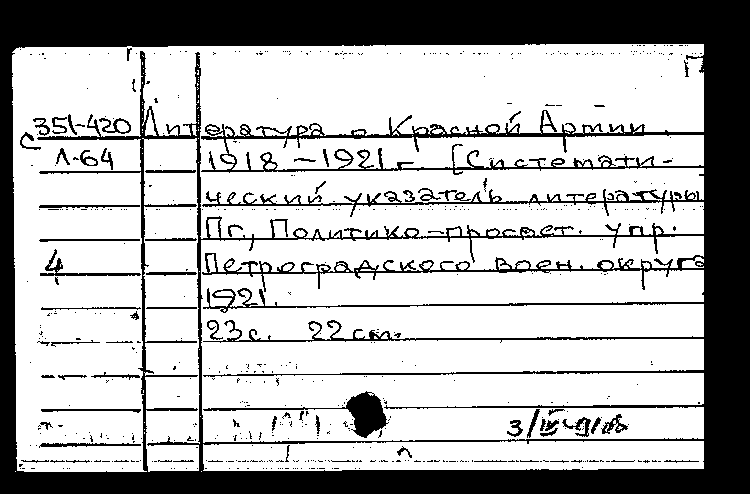 с 351-420 Литература о Красной Армии.
Л-64 1918-1921 г. [Системати-
ческий указатель литературы
Пг, Политико-просвет. упр.
4 Петроградского воен. округа
1921.
23с. 22 см.